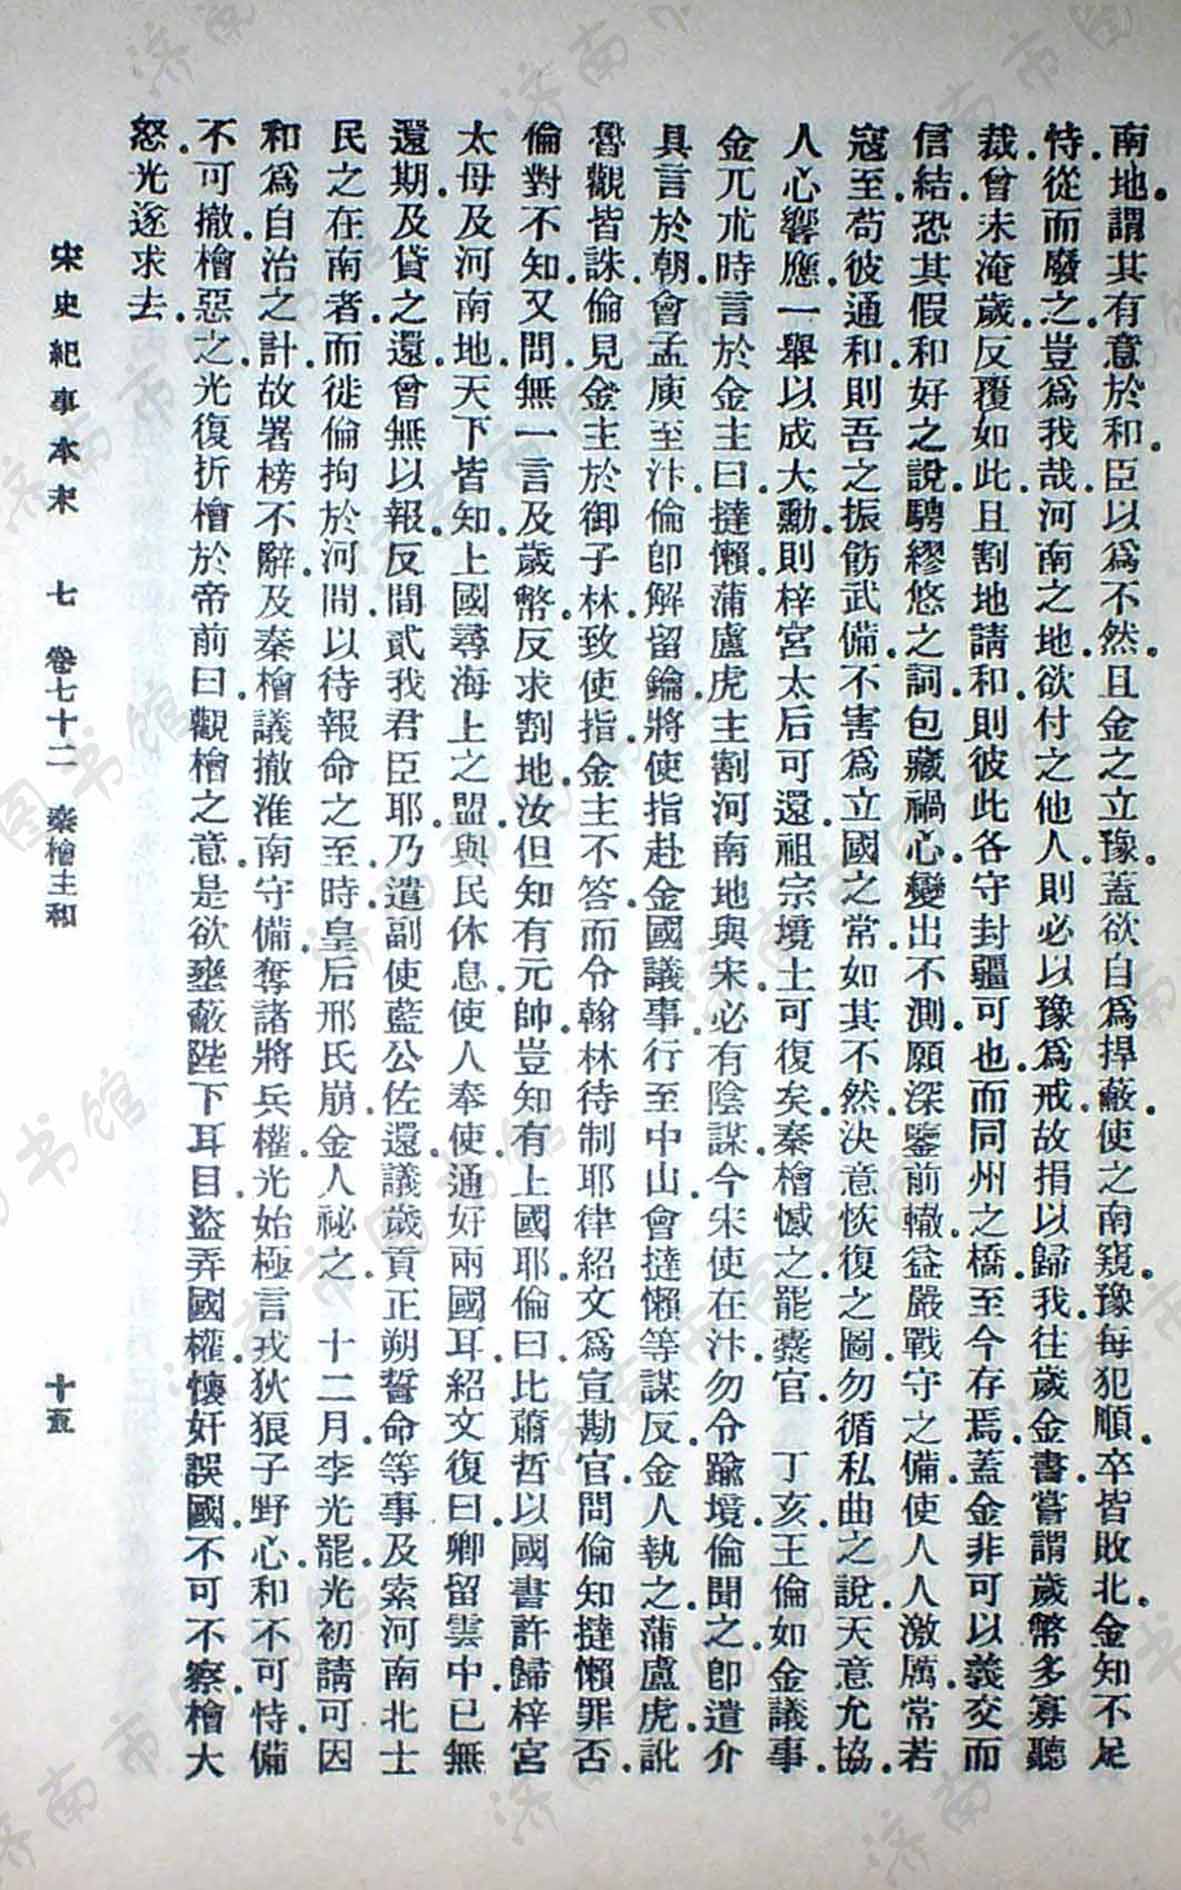 南地。謂其有意於和。臣以爲不然。且金之立豫。蓋欲自爲捍蔽。使之南窺。豫每犯順。卒皆敗北。金知不足
恃。從而廢之。豈爲我哉。河南之地。欲付之他人。則必以豫爲戒。故捐以歸我。往歲金書。嘗謂歲幣多寡聽
裁。曾未淹歲。反覆如此。且割地請和。則彼此各守封疆可也。而同州之橋。至今存焉。蓋金非可以義交而
信結。恐其假和好之說。騁繆悠之詞。包藏禍心。變出不測。願深鑒前轍。益嚴戰守之備。使人人激厲。常若
寇至。苟彼通和。則吾之振飭武備。不害爲立國之常。如其不然。決意恢復之圖。勿循私曲之說。天意允協。
人心響應。一舉以成大勳。則梓宮太后可還。祖宗境土可復矣。秦檜憾之。罷纍官 丁亥。王倫如金議事。
金兀朮時言於金主曰。撻懶蒲盧虎主割河南地與宋。必有陰謀。今宋使在汴。勿令踰境。倫聞之。卽遣介
具言於朝。會孟庾至汴。倫卽解留鑰。將使指赴金國議事。行至中山。會撻懶等謀反。金人執之。蒲盧虎訛
魯觀皆誅。倫見金主於御子林。致使指。金主不答。而令翰林待制耶律紹文爲宣勘官。問倫知撻懶罪否。
倫對不知。又問。無一言及歲幣。反求割地。汝但知有元帥。豈知有上國耶。倫曰。比蕭哲以國書許歸梓宮
太母及河南地。天下皆知。上國尋海上之盟。與民休息。使人奉使。通好兩國耳。紹文復曰。卿留雲中已無
還期。及貸之還。曾無以報。反間貳我君臣耶。乃遣副使藍公佐還。議歲貢正朔誓命等事。及索河南北士
民之在南者。而徙倫拘於河間。以待報命之至。時皇后邢氏崩。金人祕之。 十二月。李光罷。光初請可因
和爲自治之計。故署榜不辭。及秦檜議撤淮南守備。奪諸將兵權。光始極言戎狄狼子野心。和不可恃。備
不可撤。檜惡之。光復折檜於帝前曰。觀檜之意。是欲壅蔽陛下耳目。盜弄國權。懷奸誤國。不可不察。檜大
怒。光遂求去。
宋史紀事本末 七 卷七十二 秦檜主和 十五
濟南市图书馆